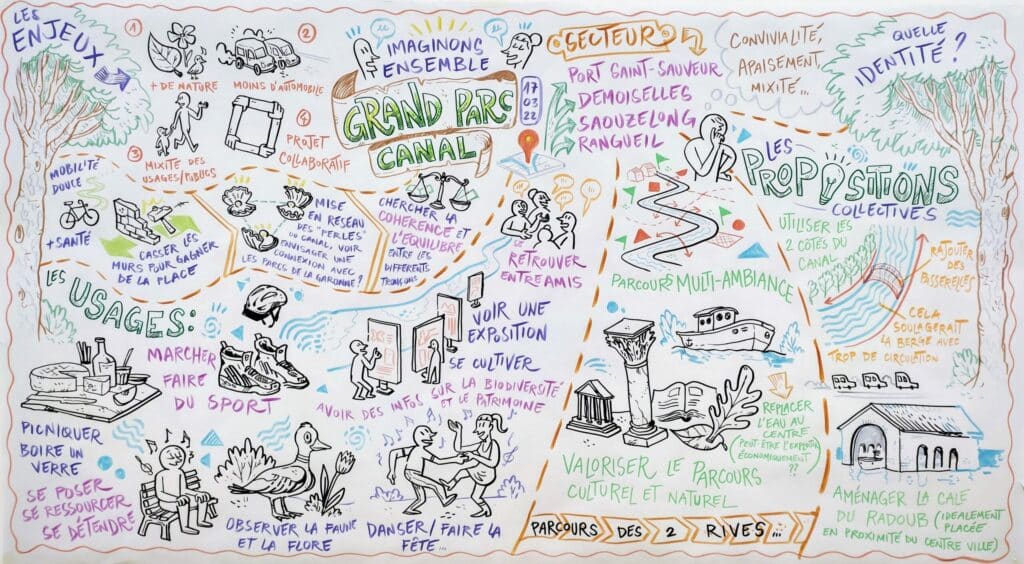 LES
ENJEUX
1
+ DE NATURE
2
MOINS D'AUTOMOBILE
3
MIXITE DES
USAGES/PUBLICS
4
PROJET
COLLABORATIF
IMAGINONS
ENSEMBLE
GRAND PARC
CANAL
17
03
22
SECTEUR
PORT SAINT-SAUVEUR
DEMOISELLES
SAOUZELONG
RANGUEIL
CONVIVIALITÉ,
APAISEMENT,
MIXITÉ...
QUELLE
IDENTITÉ ?
MOBILITÉ
DOUCE
+ SANTÉ
CASSER LES
MURS POUR GAGNER
DE LA PLACE
MISE
EN RESEAU
DES "PERLES"
DU CANAL, VOIR
ENVISAGER UNE
CONNEXION AVEC
LES PARCS DE LA GARONNE ?
CHERCHER LA
COHÉRENCE ET
L'ÉQUILIBRE
ENTRE LES
DIFFÉRENTS
TRONÇONS
SE
RETROUVER
ENTRE AMIS
LES
USAGES:
PICNIQUER
BOIRE UN
VERRE
MARCHER
FAIRE
DU SPORT
VOIR UNE
EXPOSITION
SE CULTIVER
AVOIR DES INFOS SUR LA BIODIVERSITÉ
ET LE PATRIMOINE
SE POSER
SE RESSOURCER
SE DÉTENDRE
OBSERVER LA FAUNE
ET LA FLORE
DANSER / FAIRE LA
FÊTE...
LES
PROPOSITIONS
COLLECTIVES
PARCOURS MULTI-AMBIANCE
UTILISER LES
2 CÔTÉS DU
CANAL
RAJOUTER DES
PASSERELLES
CELA
SOULAGERAIT
LA BERGE AVEC
TROP DE CIRCULATION
REPLACER
L'EAU AU
CENTRE
(PEUT ÊTRE L'EXPLOITER
ÉCONOMIQUEMENT)
??
VALORISER LE PARCOURS
CULTUREL ET NATUREL
PARCOURS DES 2 RIVES...
AMÉNAGER LA CALE
DU RADOUB (IDEALEMENT
PLACÉE
EN PROXIMITÉ DU CENTRE VILLE)